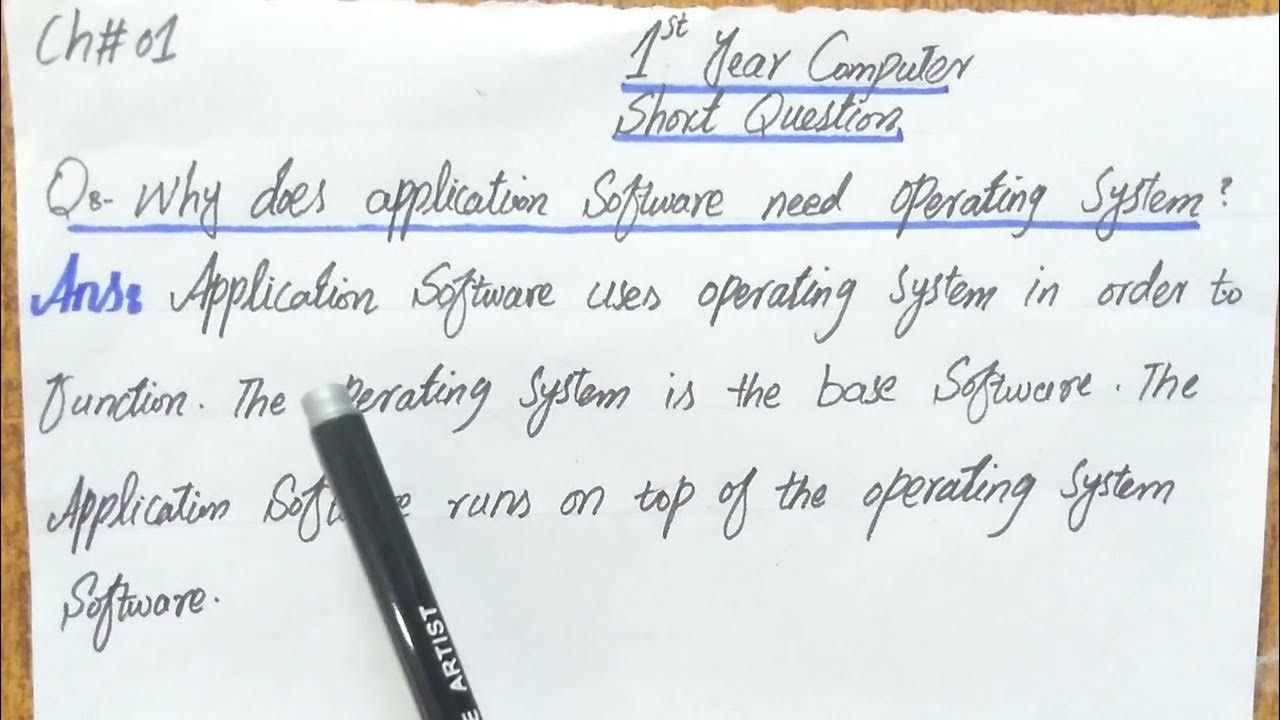 Ch# 01
1st Year Computer
Short Question
Q8- Why does application Software need operating System?
Ans: Application Software uses operating System in order to
function. The operating System is the base Software. The
Application Software runs on top of the operating System
Software.
ARTIST